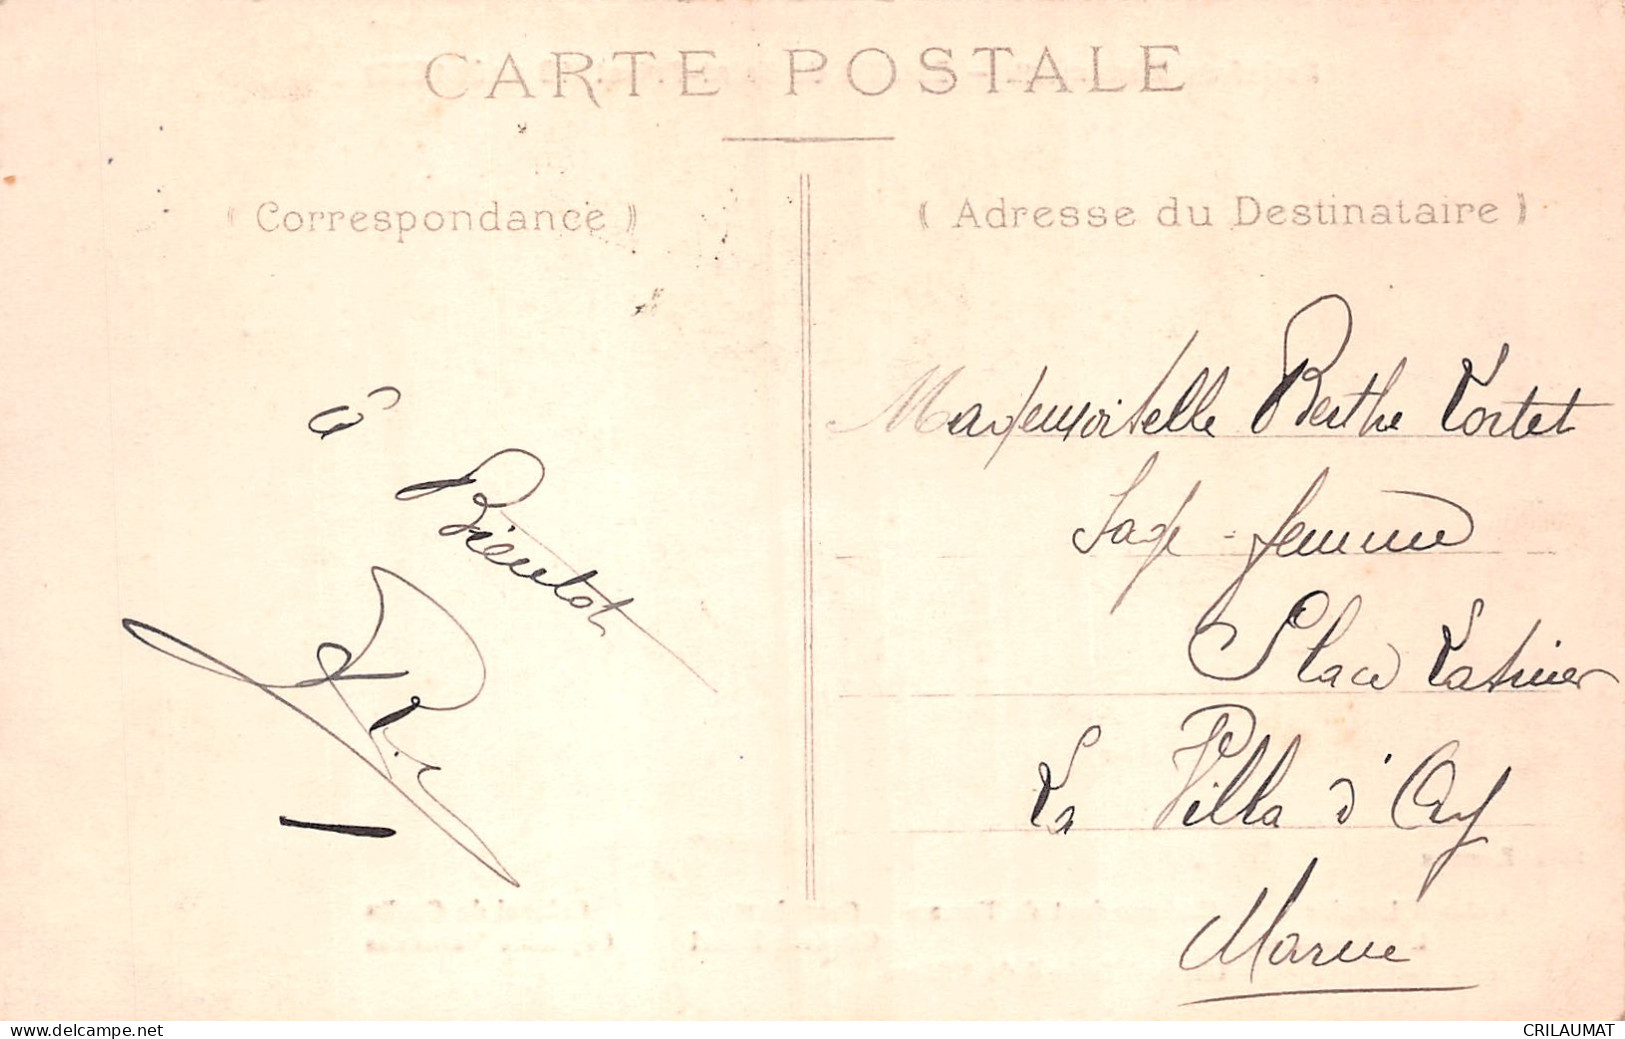 CARTE POSTALE
( Correspondance )
( Adresse du Destinataire )
à
Bientot
Mademoiselle Berthe Tortet
Sage-femme
Place
La Villa d'
Marne
www.delcampe.net
CRILAUMAT